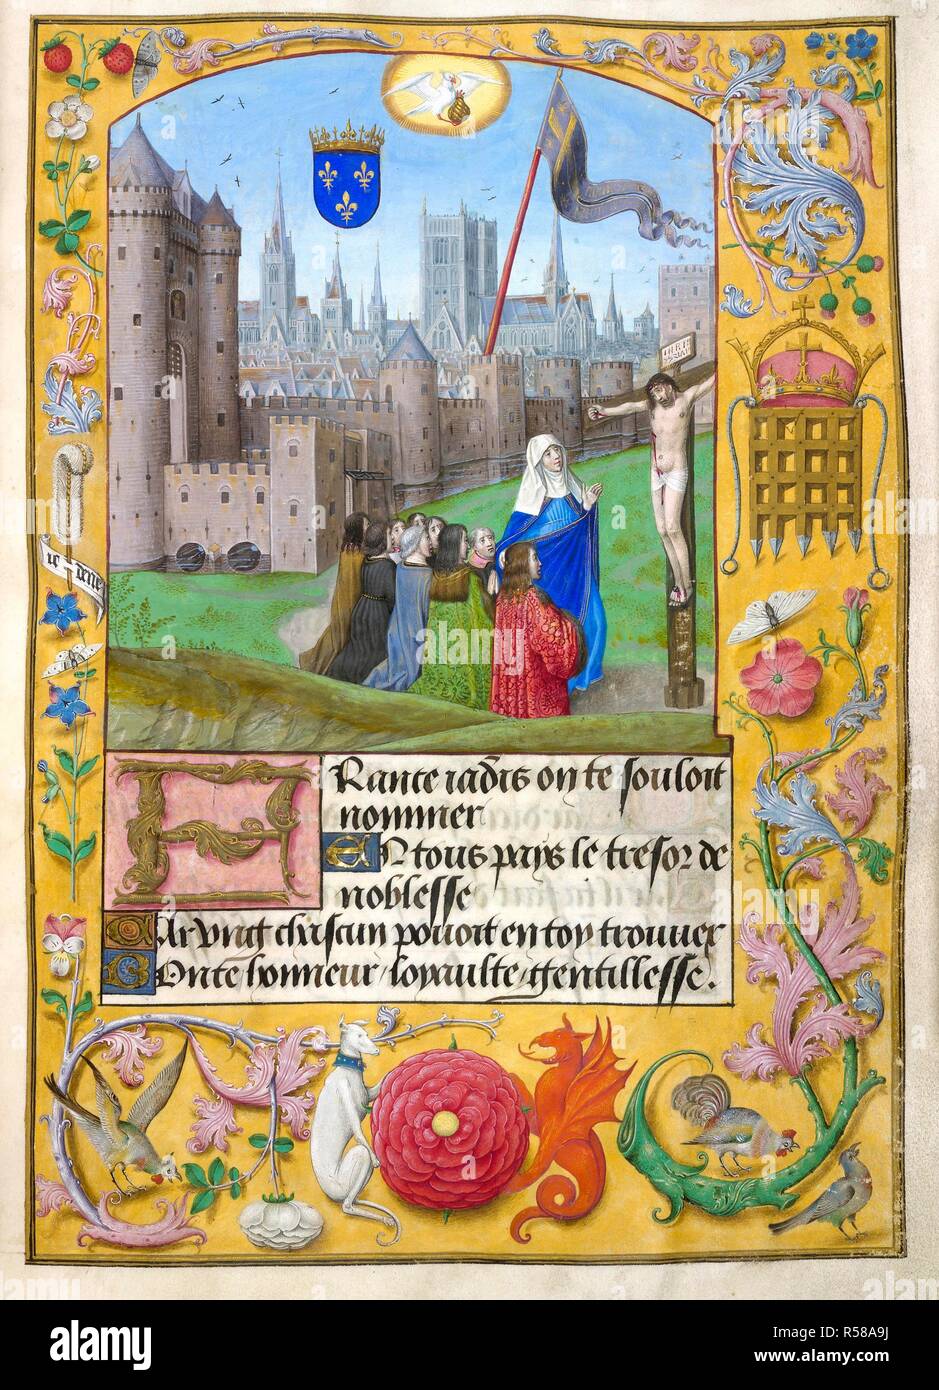 ie dene
FRance iadis on te souloit
nommer
EN tous pays le tresor de
noblesse
CAr vng chascun pouoit en toy trouuer
BOnte honneur / loyaulte / gentillesse .
alamy
Image ID: R58A9J
www.alamy.com